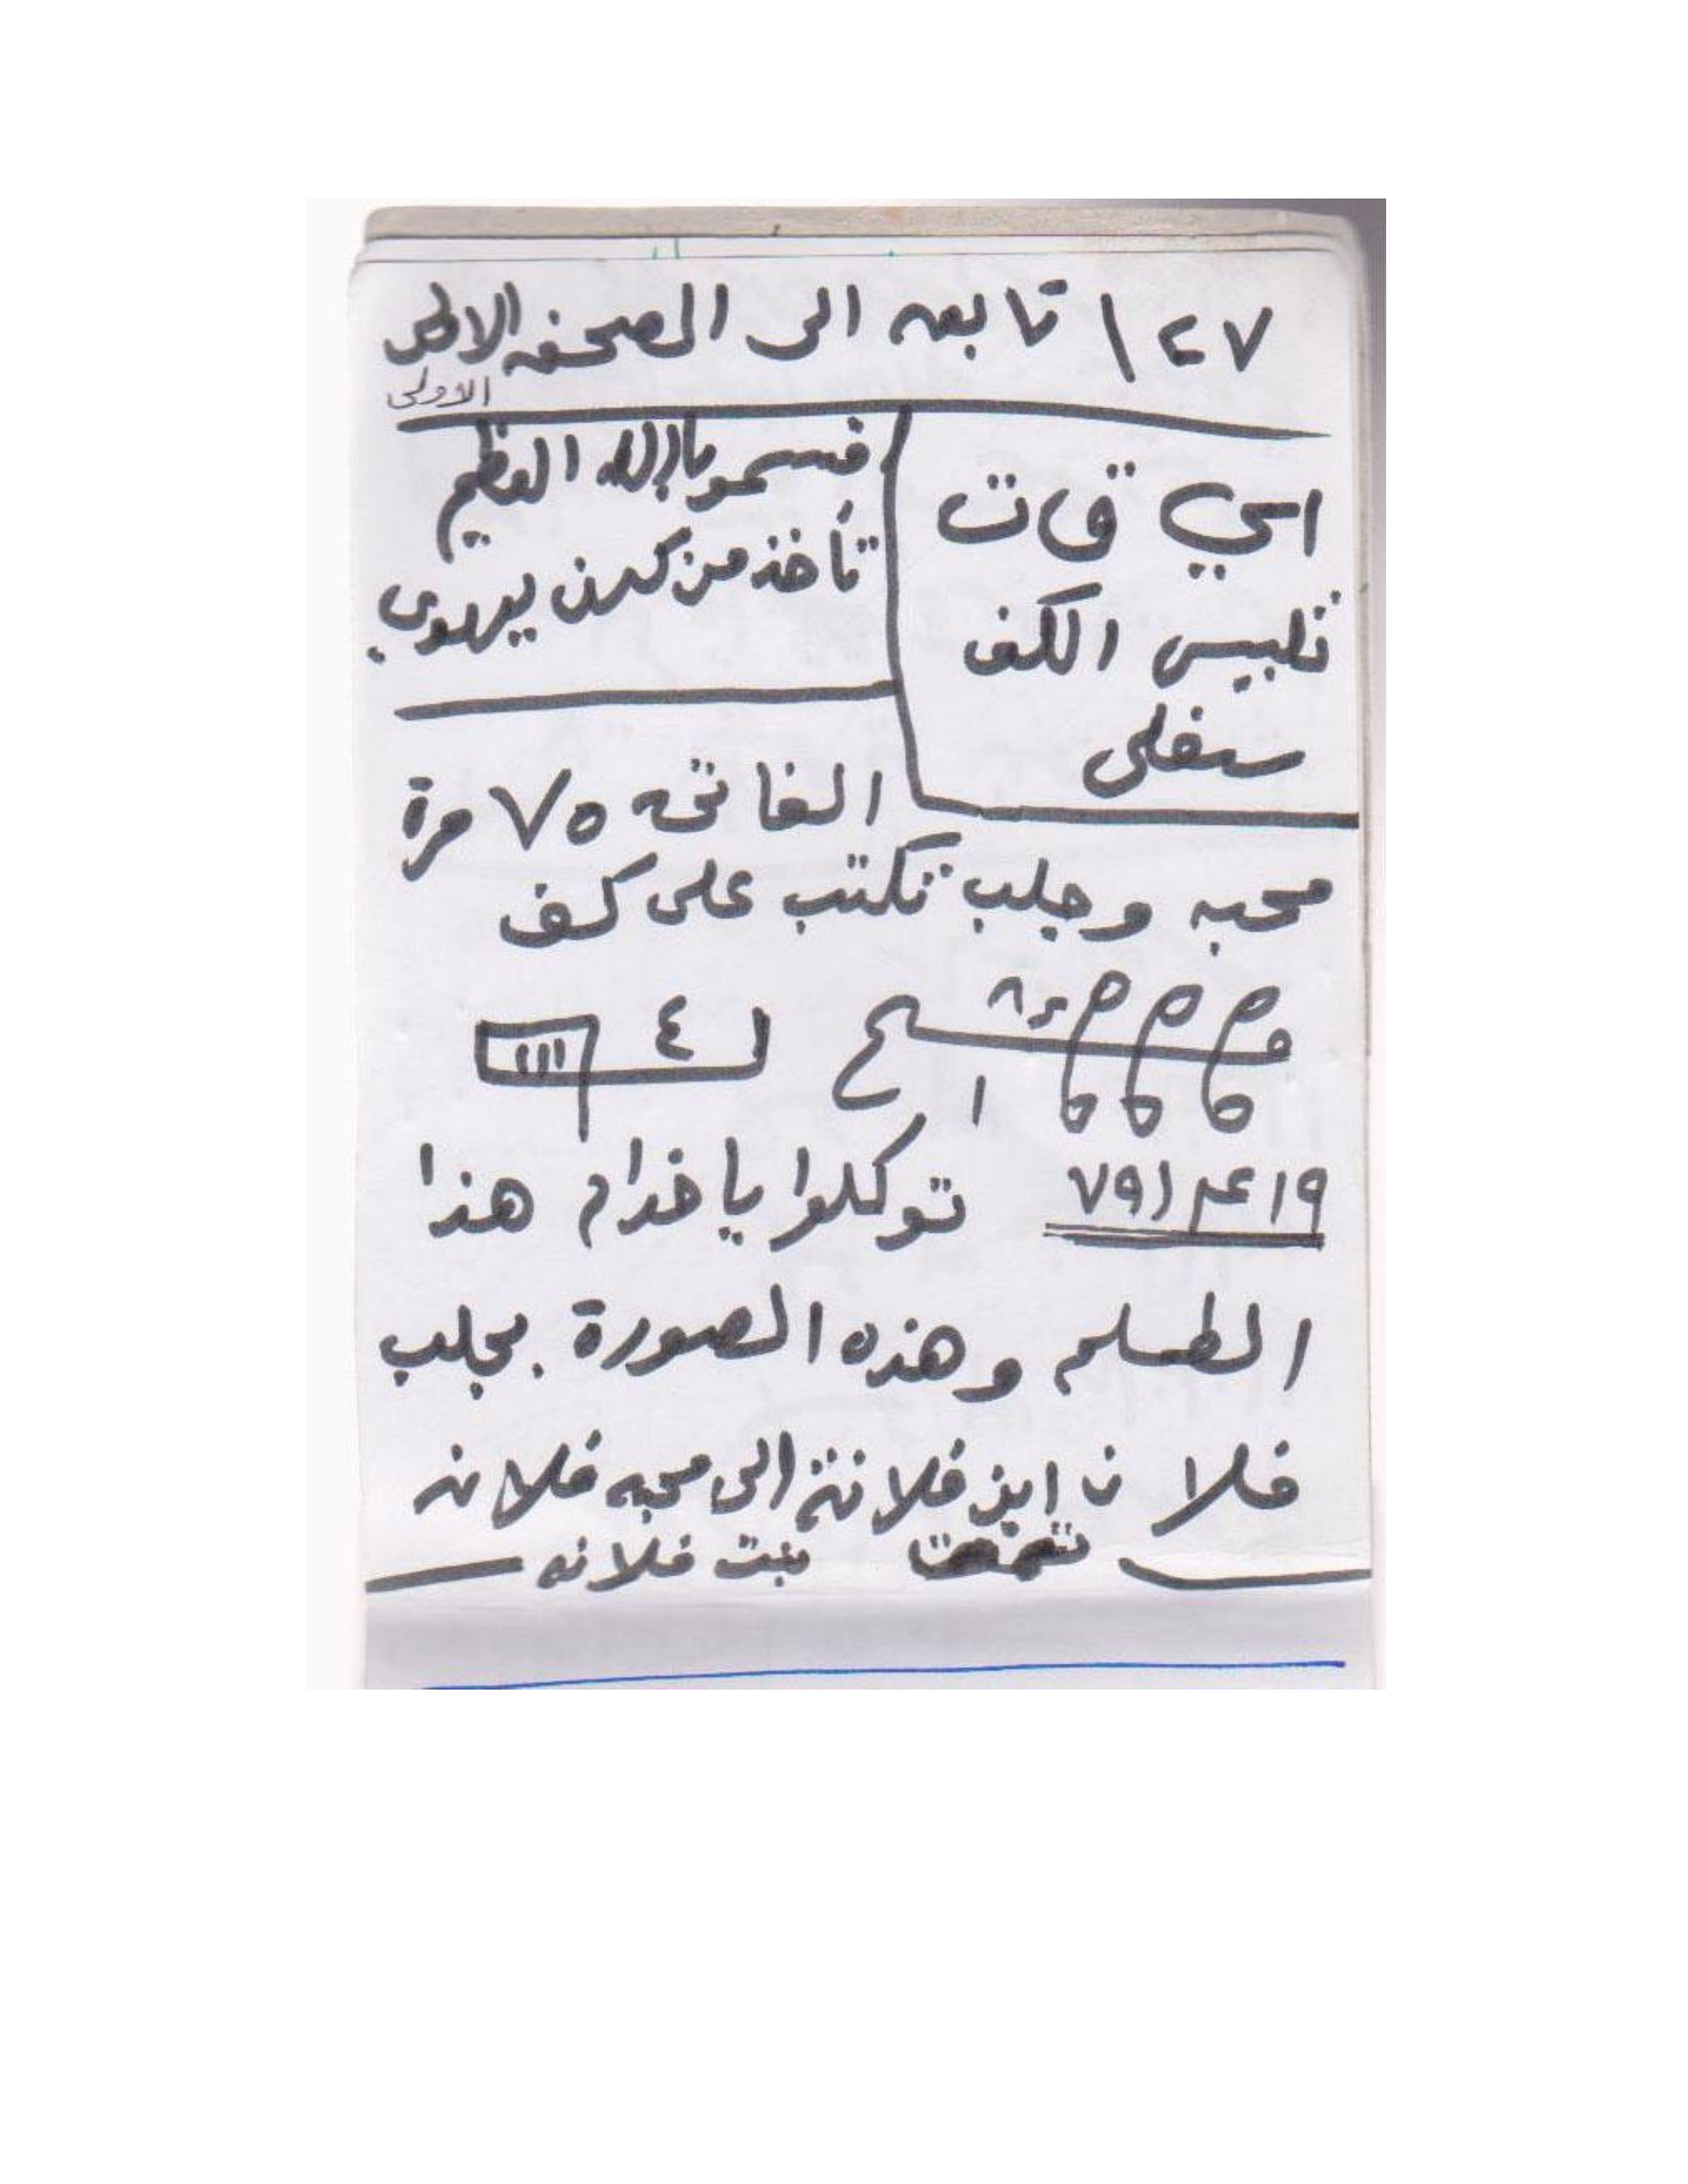 ١٢٧ تابعه الى الصحفه الاولى
الاولى
اسي قات
تلبيس الكف
سفلى
بالله العظيم
تأخذ من يهودي
الفاتحه ٧٥ مرة
محبه وجلب تكتب على كف
٤ ١١١
توكلوا يا خدام هذا
الطسلم وهذه الصورة بجلب
فلان ابن فلانة الى محبه فلانه
بنت فلانه